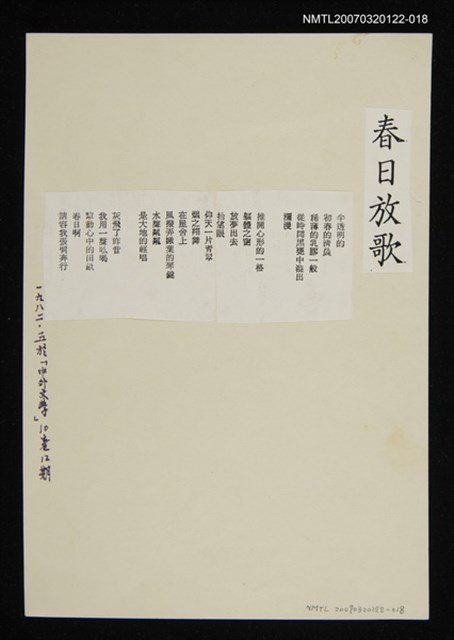 NMTL20070320122-018
春日放歌
半透明的
初春的清晨
稀薄的乳膠一般
從時間黑甕中溢出
瀰漫
推開心形的一格
軀體之窗
放夢出去
抬望眼
仰天一片青翠
烟之翔舞
在屋脊上
風撥弄繖葉的琴鍵
水聲氣氣
是大地的輕唱
灰飛了昨昔
我用一聲吆喝
犁動心中的田畝
春日啊
請容我張臂奔行
一九八二.五於「中外文學」10卷12期
NMTL 20070320122-018